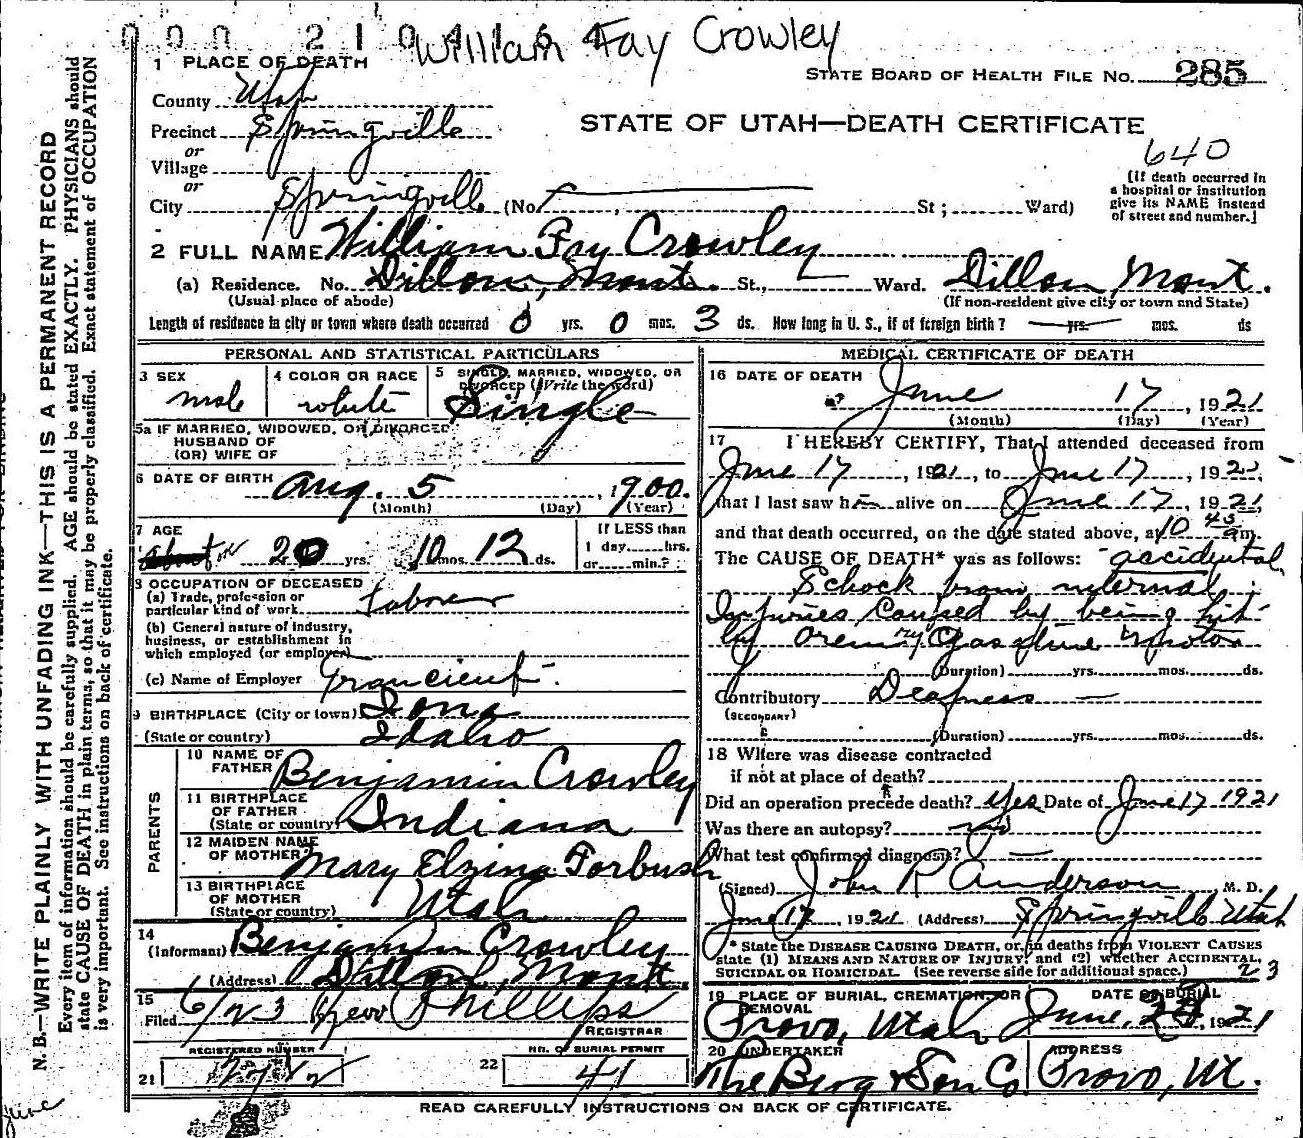 000 2104164
William Fay Crowley
1 PLACE OF DEATH
STATE BOARD OF HEALTH FILE NO. 285
County Utah
STATE OF UTAH—DEATH CERTIFICATE
Precinct Springville
or
Village
or
640
[If death occurred in a hospital or institution give its NAME instead of street and number.]
City Springville (No. , St; Ward)
2 FULL NAME William Fay Crowley
(a) Residence. No. Dillon, Mont. St., Ward. Dillon, Mont.
(Usual place of abode) (If non-resident give city or town and State)
Length of residence in city or town where death occurred 0 yrs. 0 mos. 3 ds. How long in U. S., if of foreign birth? yrs. mos. ds
PERSONAL AND STATISTICAL PARTICULARS
3 SEX male
4 COLOR OR RACE white
5 SINGLE, MARRIED, WIDOWED, OR DIVORCED (Write the word) Single
5a IF MARRIED, WIDOWED, OR DIVORCED
HUSBAND OF
(OR) WIFE OF
6 DATE OF BIRTH Aug. 5, 1900.
(Month) (Day) (Year)
7 AGE about or 20 yrs. 10 mos. 12 ds.
If LESS than
1 day......hrs.
or......min.?
8 OCCUPATION OF DECEASED
(a) Trade, profession or
particular kind of work Laborer
(b) General nature of industry,
business, or establishment in
which employed (or employer)
(c) Name of Employer Trancient
9 BIRTHPLACE (City or town) Iona
(State or country) Idaho
PARENTS
10 NAME OF
FATHER Benjamin Crowley
11 BIRTHPLACE
OF FATHER
(State or country) Indiana
12 MAIDEN NAME
OF MOTHER Mary Elzina Forbush
13 BIRTHPLACE
OF MOTHER
(State or country) Utah
14
(Informant) Benjamin Crowley
(Address) Dillon, Mont.
15
Filed 6/23 Phillips
REGISTRAR
REGISTERED NUMBER
21
NO. OF BURIAL PERMIT
22 41
MEDICAL CERTIFICATE OF DEATH
16 DATE OF DEATH June 17, 1921
(Month) (Day) (Year)
17 I HEREBY CERTIFY, That I attended deceased from
June 17, 1921, to June 17, 192
that I last saw him alive on June 17, 1921,
and that death occurred, on the date stated above, at 10 45 am.
The CAUSE OF DEATH* was as follows: accidental
Schock from internal
Injuries Caused by being hit
by Orem Ry Gasoline Motor
(Duration) yrs. mos. ds.
Contributory Deafness
(SECONDARY)
(Duration) yrs. mos. ds.
18 Where was disease contracted
if not at place of death?
Did an operation precede death? Yes Date of June 17 1921
Was there an autopsy? no
What test confirmed diagnosis?
(Signed) John R Anderson, M. D.
June 17, 1921 (Address) Springville Utah
* State the DISEASE CAUSING DEATH, or, in deaths from VIOLENT CAUSES
state (1) MEANS AND NATURE OF INJURY; and (2) whether ACCIDENTAL,
SUICIDAL OR HOMICIDAL. (See reverse side for additional space.)
23
19 PLACE OF BURIAL, CREMATION, OR REMOVAL Provo, Utah
DATE OF BURIAL June, 1921
20 UNDERTAKER The Berg & Son Co.
ADDRESS Provo, Ut.
READ CAREFULLY INSTRUCTIONS ON BACK OF CERTIFICATE.
N. B.—WRITE PLAINLY WITH UNFADING INK—THIS IS A PERMANENT RECORD
Every item of information should be carefully supplied. AGE should be stated EXACTLY. PHYSICIANS should
state CAUSE OF DEATH in plain terms, so that it may be properly classified. Exact statement of OCCUPATION
is very important. See instructions on back of certificate.
June